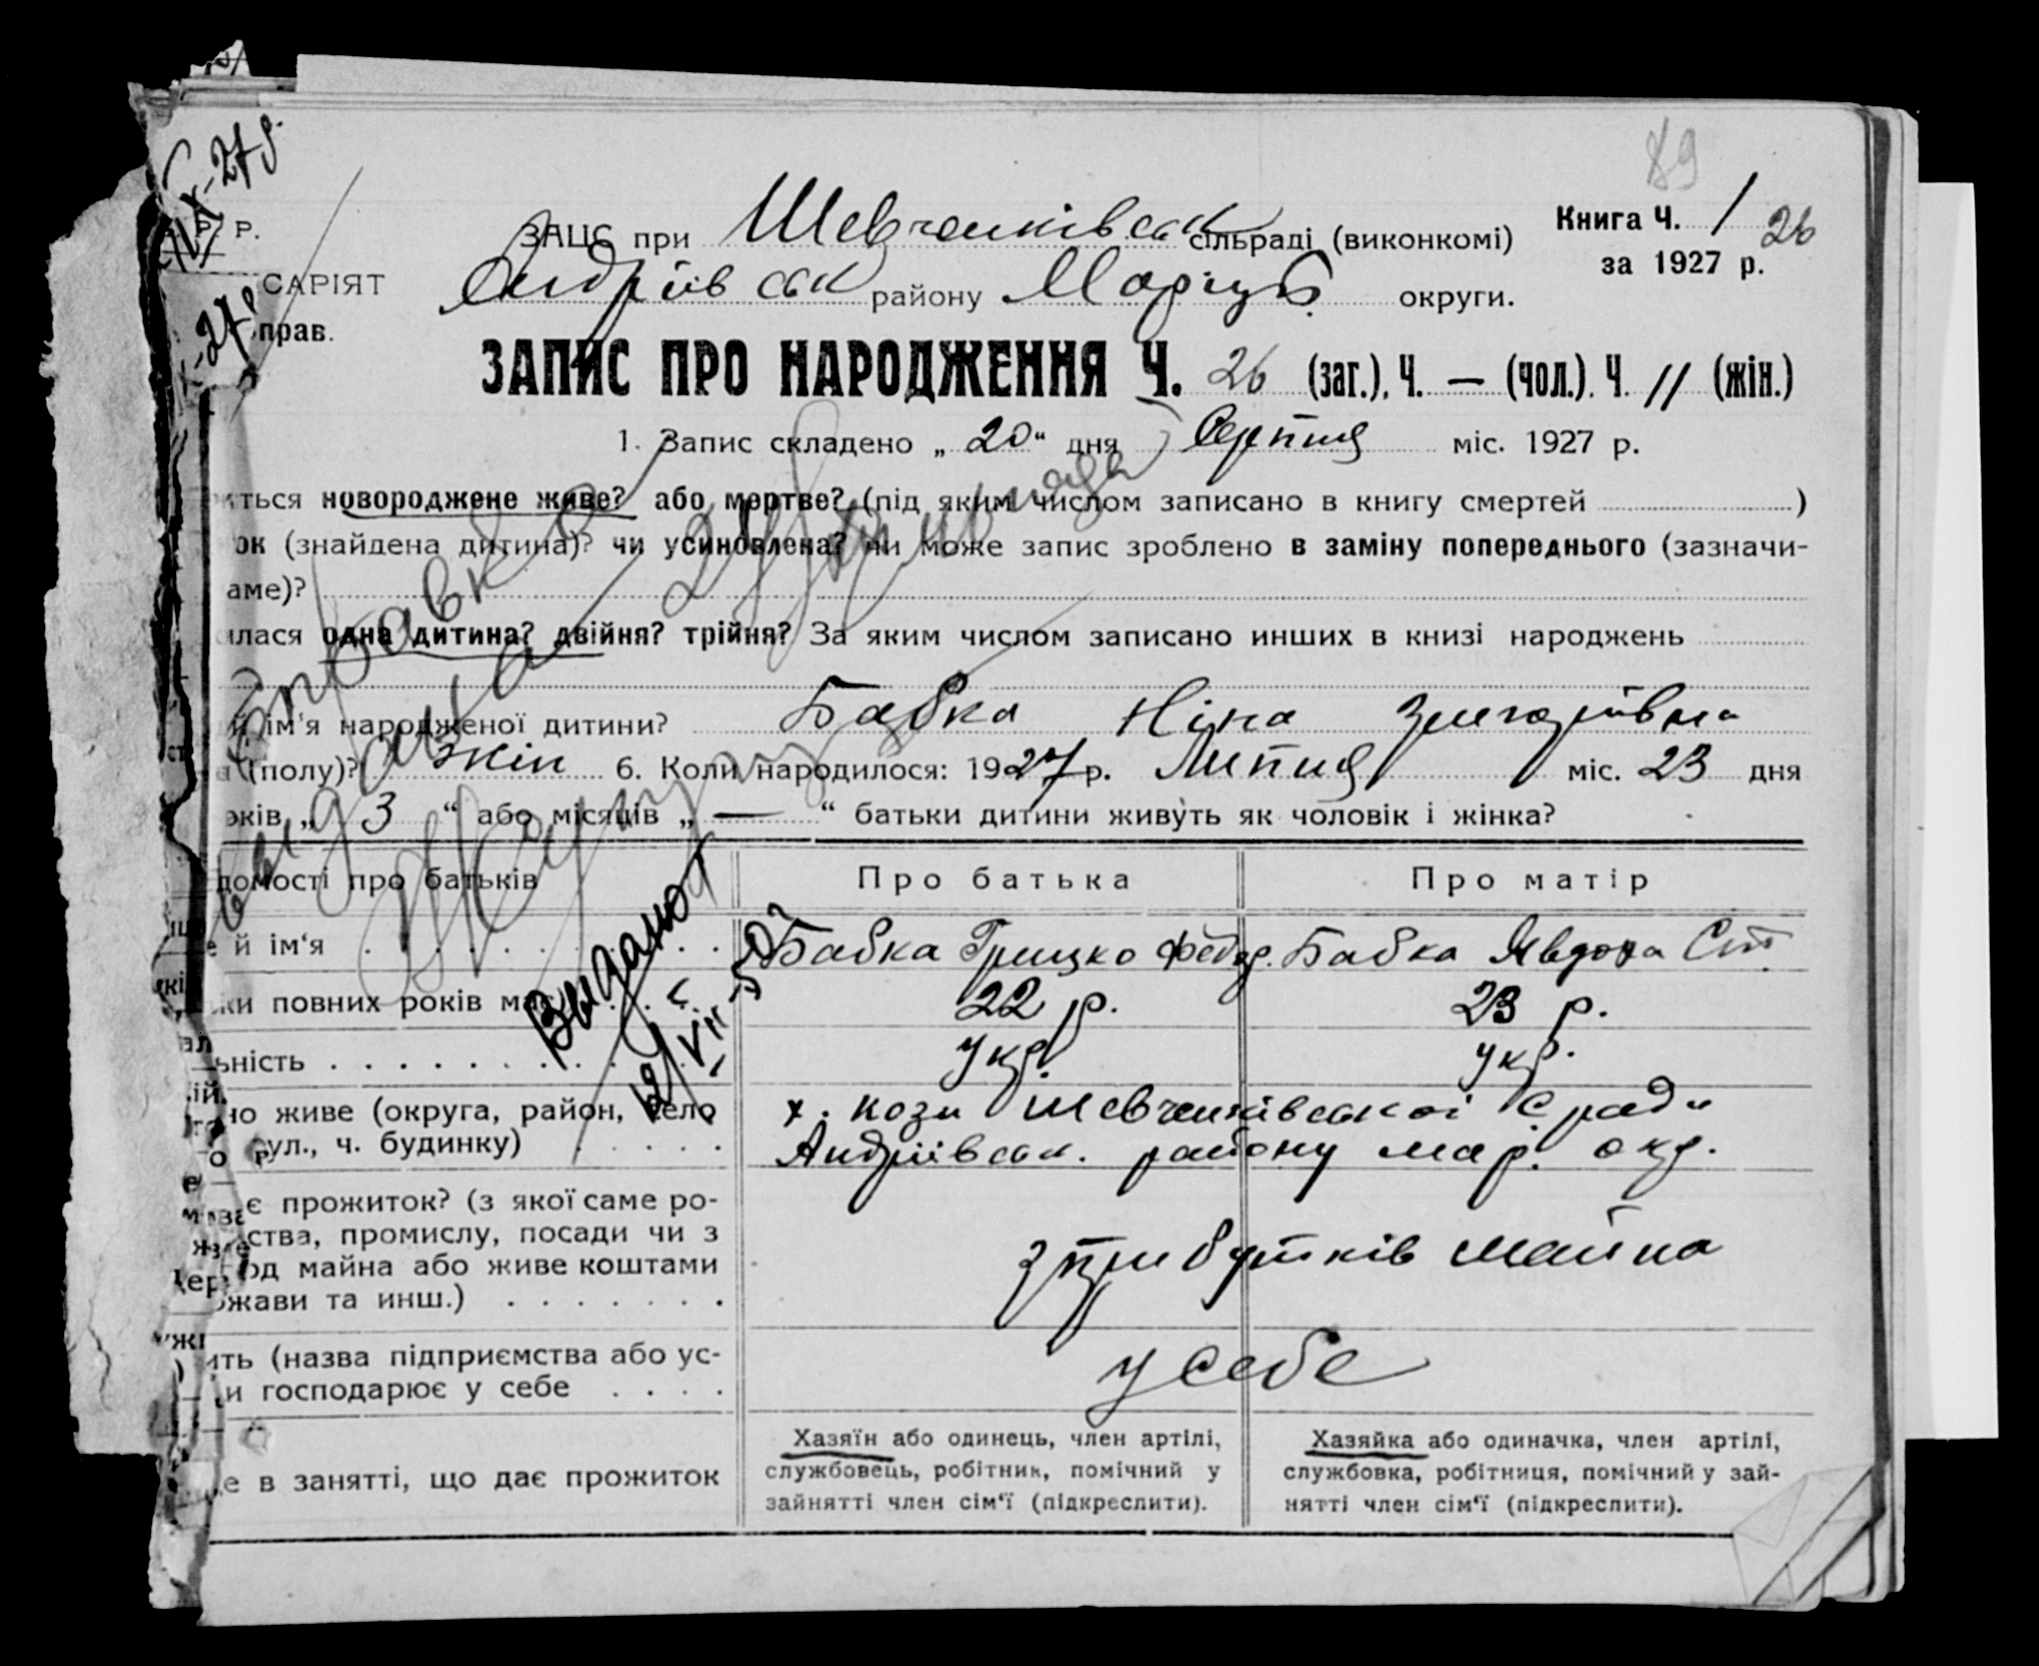 89
ІХ-27 р.
Р. Р.
ЗАЦС при Шевченківськ сільраді (виконкомі) Книга Ч. 1 26
за 1927 р.
САРІЯТ Андріївськ району Маріуп. округи.
прав.
ЗАПИС ПРО НАРОДЖЕННЯ Ч. 26 (заг.), Ч. — (чол.). Ч. 11 (жін.)
1. Запис складено „ 20 “ дня Серпня міс. 1927 р.
ться новороджене живе? або мертве? (під яким числом записано в книгу смертей )
ок (знайдена дитина)? чи усиновлена? чи може запис зроблено в заміну попереднього (зазначи-
аме)?
илася одна дитина? двійня? трійня? За яким числом записано инших в книзі народжень
й ім'я народженої дитини? Бабка Ніна
(полу)? жін 6. Коли народилося: 1927 р. Липня міс. 23 дня
оків „ 3 “ або місяців „ — “ батьки дитини живуть як чоловік і жінка?
домості про батьків Про батька Про матір
е й ім‘я Бабка Грицко Федор. Бабка Явдоха Ст.
ки повних років має 22 р. 23 р.
ьність укр. укр.
но живе (округа, район, село х. кози Шевченківської С ради
вул., ч. будинку) Андріївськ. району мар. окр.
є прожиток? (з якої саме ро-
ства, промислу, посади чи з
од майна або живе коштами з прибутків майна
ржави та инш.)
ить (назва підприємства або ус-
и господарює у себе у себе
Хазяїн або одинець, член артілі, Хазяйка або одиначка, член артілі,
е в занятті, що дає прожиток службовець, робітник, помічний у службовка, робітниця, помічний у зай-
зайнятті член сім‘ї (підкреслити). нятті член сім‘ї (підкреслити).
Справка
выдана
Выдано